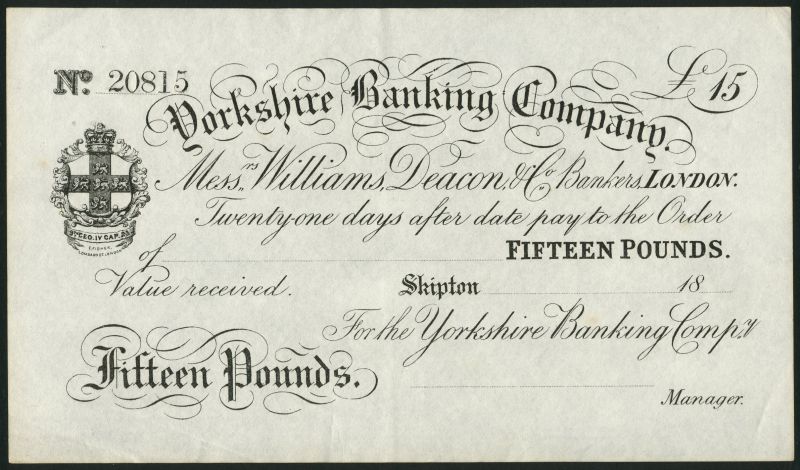 No. 20815
£15
Yorkshire Banking Company.
Messrs. Williams, Deacon, & Co. Bankers, LONDON.
Twenty-one days after date pay to the Order
of FIFTEEN POUNDS.
Value received. Skipton 18
For the Yorkshire Banking Compy.
Fifteen Pounds.
Manager.
GEO. IV CAP.
LOMBARD ST. LONDON